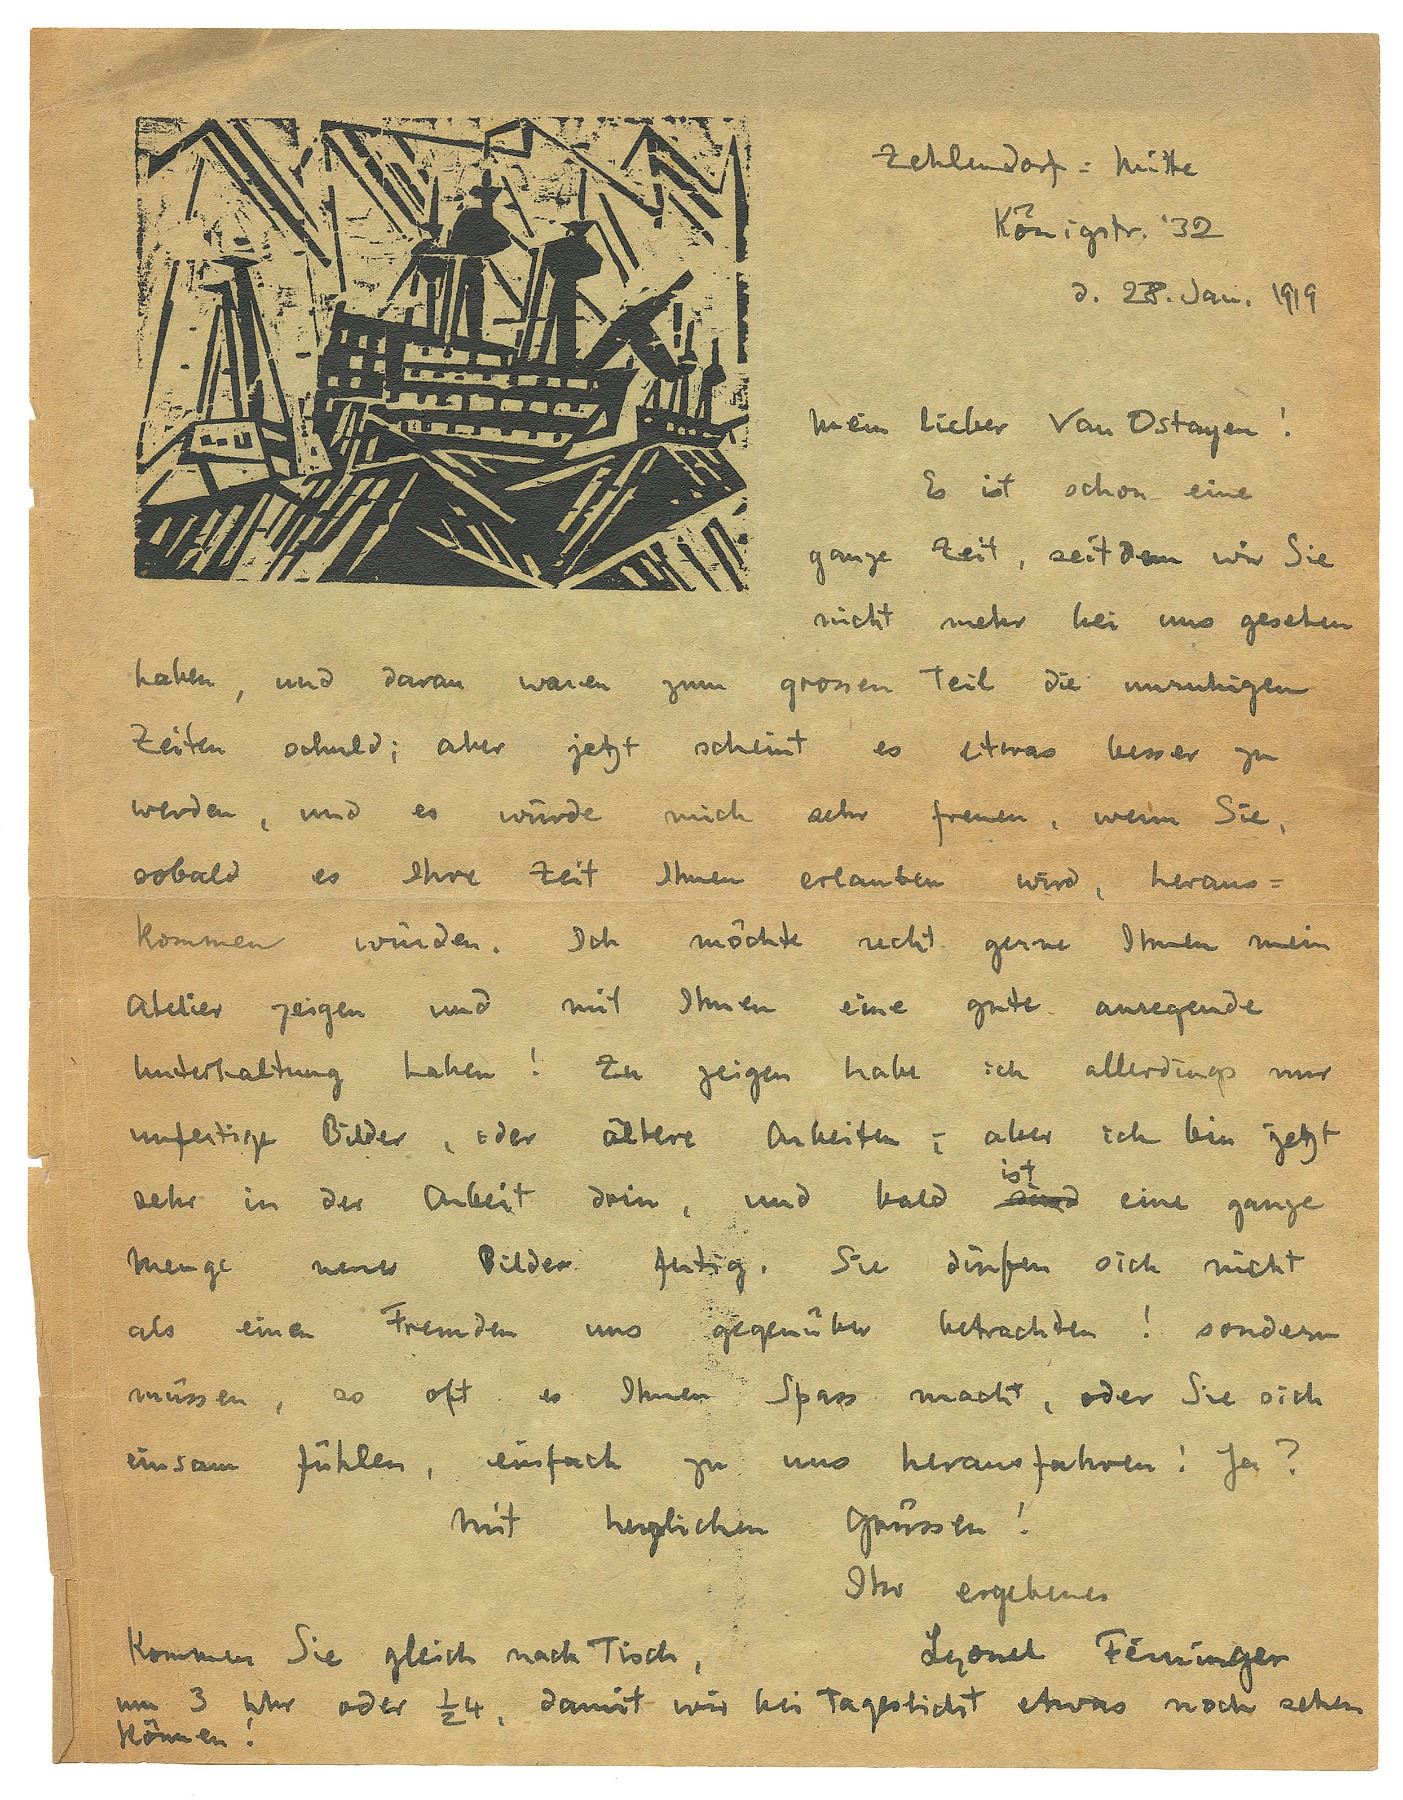 Zehlendorf = Mitte
Königstr. 32
d. 28. Jan. 1919
Mein lieber Van Ostayen!
Es ist schon eine
ganze Zeit, seitdem wir Sie
nicht mehr bei uns gesehen
haben, und daran waren zum grossen Teil die unruhigen
Zeiten schuld; aber jetzt scheint es etwas besser zu
werden, und es würde mich sehr freuen, wenn Sie,
sobald es Ihre Zeit Ihnen erlauben wird, heraus=
kommen würden. Ich möchte recht gerne Ihnen mein
Atelier zeigen und mit Ihnen eine gute anregende
Unterhaltung haben! Zu zeigen habe ich allerdings nur
unfertige Bilder, oder ältere Arbeiten; aber ich bin jetzt
sehr in der Arbeit drin, und bald sind ist eine ganze
Menge neuer Bilder fertig. Sie dürfen sich nicht
als einen Fremden uns gegenüber betrachten! sondern
müssen, so oft es Ihnen Spass macht, oder Sie sich
einsam fühlen, einfach zu uns herausfahren! Ja?
Mit herzlichen Grüssen!
Ihr ergebener
Lyonel Feininger
Kommen Sie gleich nach Tisch,
um 3 Uhr oder ½4, damit wir bei Tageslicht etwas noch sehen
können!